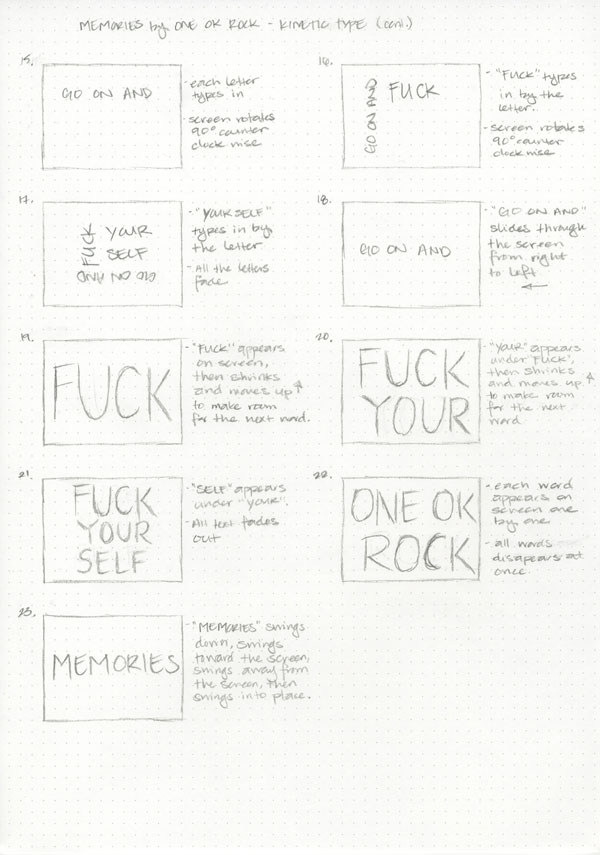 MEMORIES by ONE OK ROCK - KINETIC TYPE (cont.)
15.
GO ON AND
- each letter
types in
- screen rotates
90° counter
clock wise
16.
GO ON AND
FUCK
- "FUCK" types
in by the
letter.
- screen rotates
90° counter
clock wise
17.
FUCK
YOUR
SELF
GO ON AND
- "YOURSELF"
types in by
the letter
- All the letters
fade
18.
GO ON AND
- "GO ON AND"
slides through
the screen
from right
to left
←
19.
FUCK
- "FUCK" appears
on screen,
then shrinks
and moves up ↑
to make room
for the next word.
20.
FUCK
YOUR
- "YOUR" appears
under "FUCK",
then shrinks
and moves up ↑
to make room
for the next
word
21.
FUCK
YOUR
SELF
- "SELF" appears
under "YOUR".
- All text fades
out
22.
ONE OK
ROCK
- each word
appears on
screen one
by one
- all words
disapears at
once.
23.
MEMORIES
- "MEMORIES" swings
down, swings
toward the screen,
swings away from
the screen, then
swings into place.